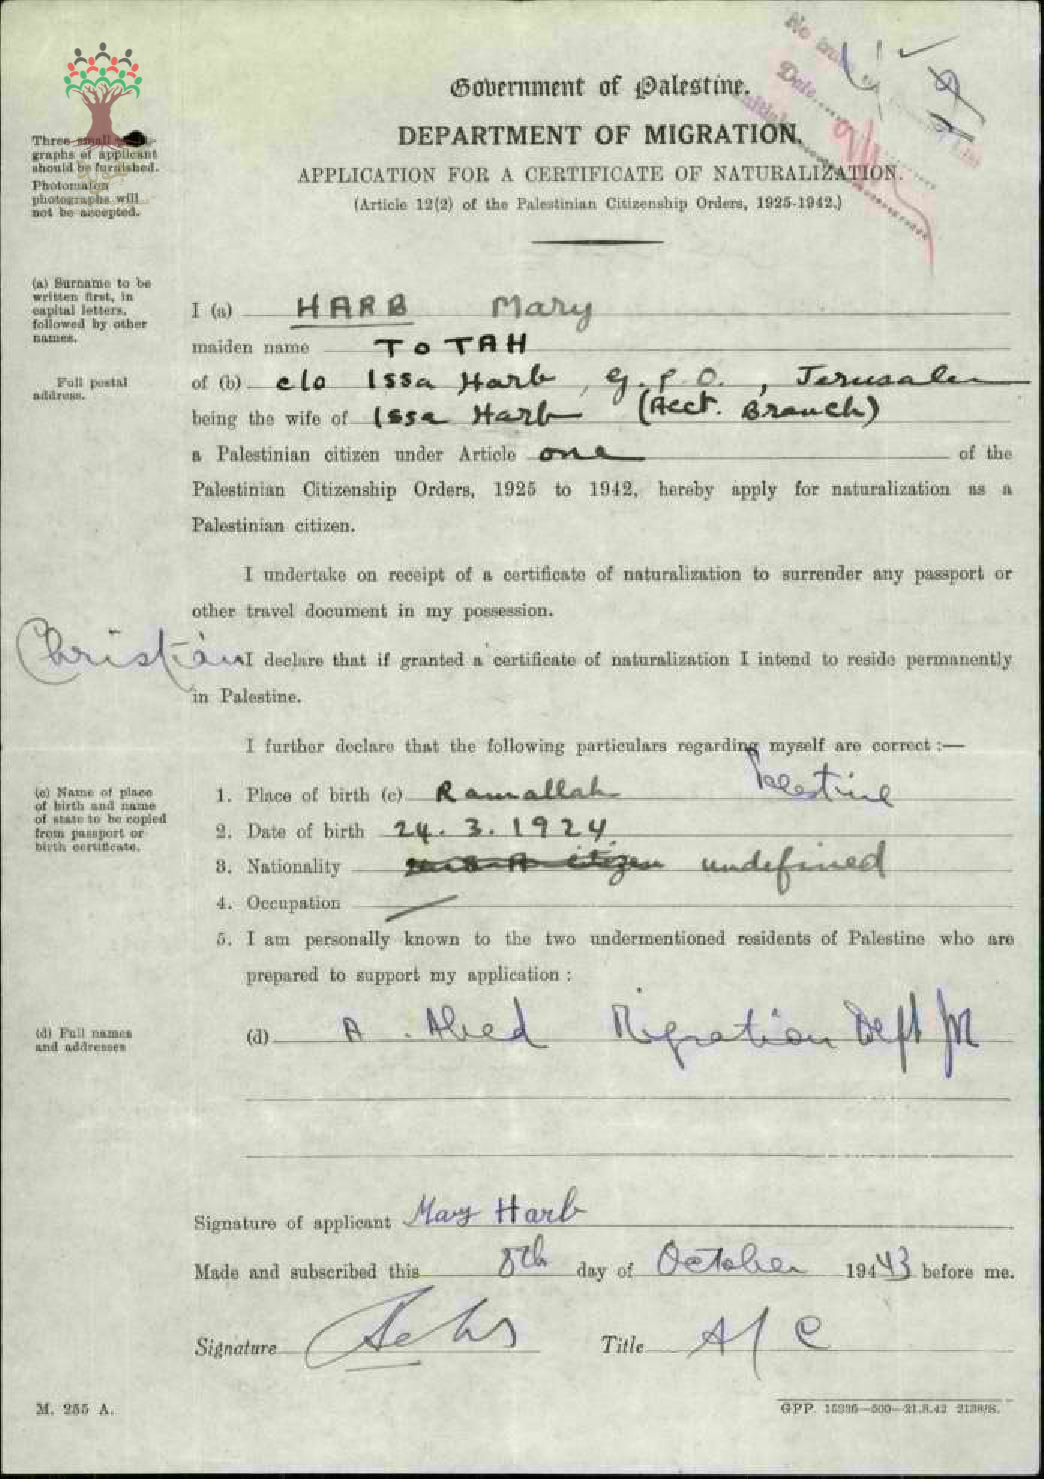 Government of Palestine.
DEPARTMENT OF MIGRATION.
APPLICATION FOR A CERTIFICATE OF NATURALIZATION.
(Article 12(2) of the Palestinian Citizenship Orders, 1925-1942.)
No trace
Date
Three small
graphs of applicant
should be furnished.
Photomaton
photographs will
not be accepted.
(a) Surname to be
written first, in
capital letters,
followed by other
names.
I (a) HARB Mary
maiden name TOTAH
Full postal
address.
of (b) c/o Issa Harb, G.P.O., Jerusalem
being the wife of Issa Harb (Acct. Branch)
a Palestinian citizen under Article one of the
Palestinian Citizenship Orders, 1925 to 1942, hereby apply for naturalization as a
Palestinian citizen.
I undertake on receipt of a certificate of naturalization to surrender any passport or
other travel document in my possession.
Christian
I declare that if granted a certificate of naturalization I intend to reside permanently
in Palestine.
I further declare that the following particulars regarding myself are correct :—
(c) Name of place
of birth and name
of state to be copied
from passport or
birth certificate.
1. Place of birth (c) Ramallah Palestine
2. Date of birth 24.3.1924
3. Nationality citizen undefined
4. Occupation
5. I am personally known to the two undermentioned residents of Palestine who are
prepared to support my application :
(d) Full names
and addresses
(d) A. Abed Migration Dept
Signature of applicant Mary Harb
Made and subscribed this 8th day of October 1943 before me.
Signature Title A/C
M. 255 A.
GPP. 15336—500—21.8.42 2138/S.